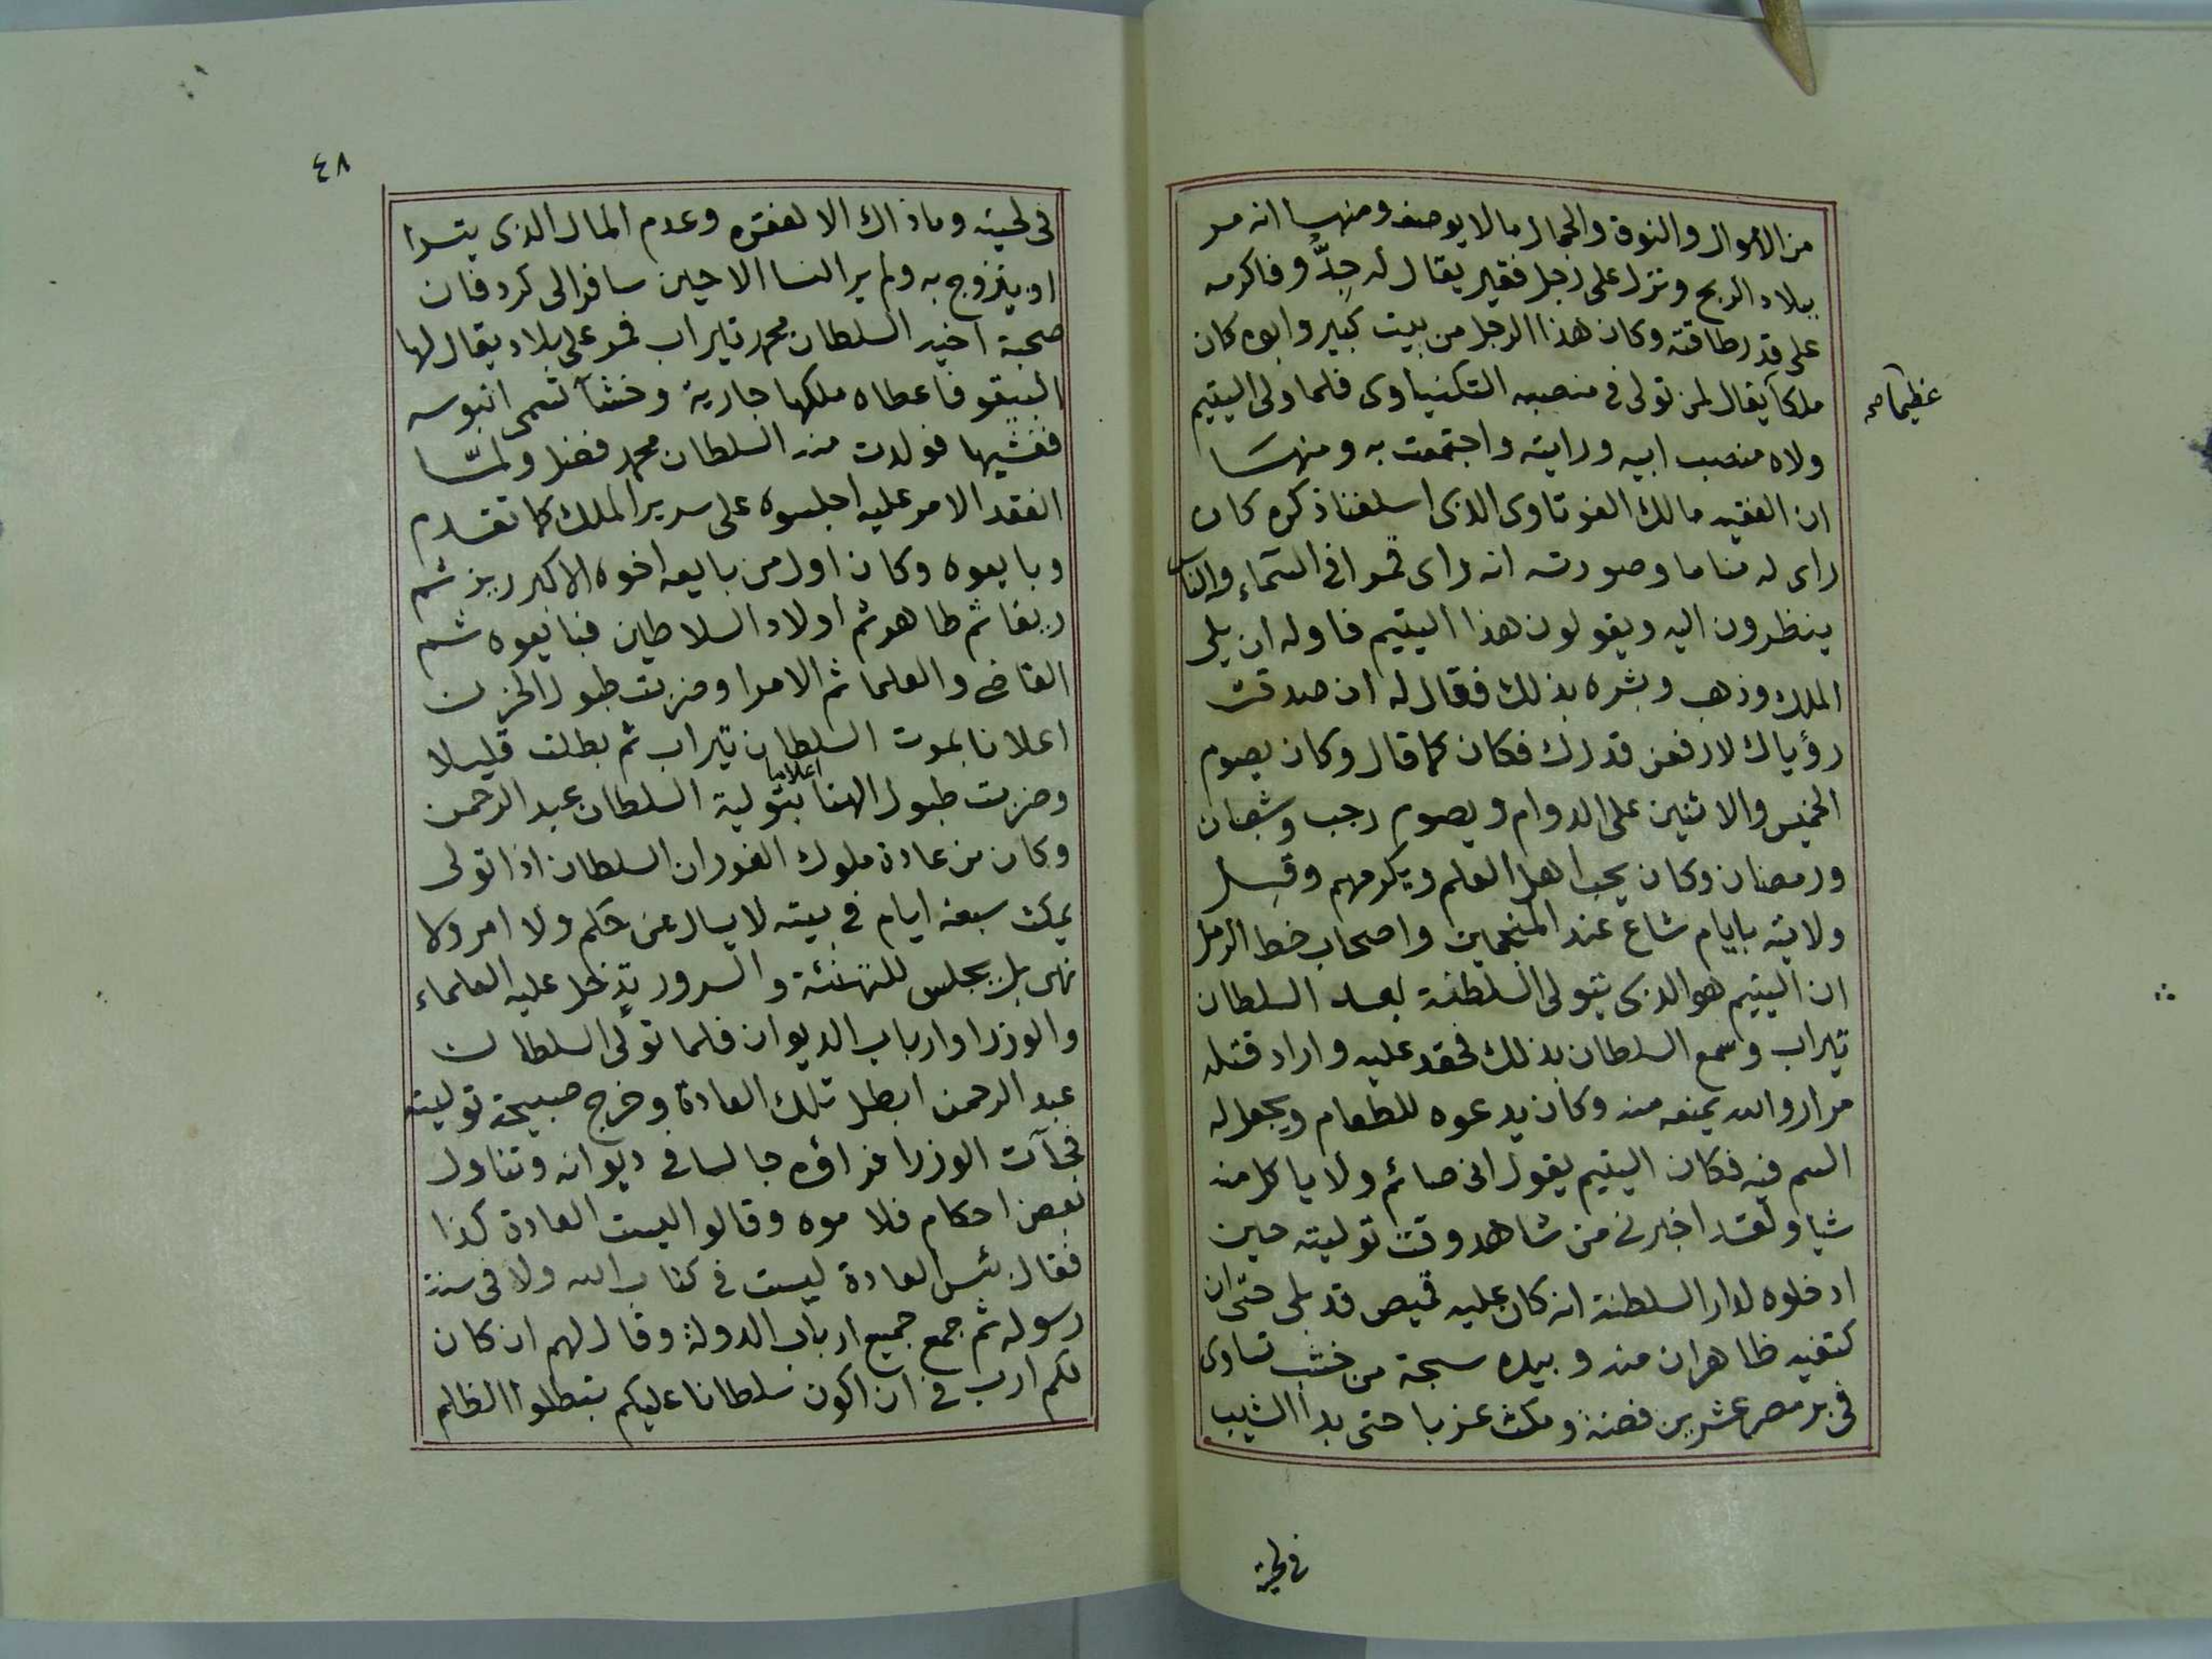 من الاموال والنوق والجمال ما لا يوصف ومنها انه مر
ببلاد الريح ونزل على رجل فقير يقال له جدُّو فاكرمه
على قدر طاقته وكان هذا الرجل من بيت كبير وابوه كان
ملكا يقال لمن تولى فى منصبه التكنياوى فلما ولى اليتيم
عظيما صح
ولاه منصب ابيه ورايته واجتمعت به ومنها
ان الفقيه مالك الفوتاوى الذى اسلفنا ذكره كان
راى له مناما وصورته انه راى قمرا فى السماء والناس
ينظرون اليه ويقولون هذا اليتيم فاوله ان يلى
الملك وذهب وبشره بذلك فقال له ان صدقت
رؤياك لارفعن قدرك فكان كما قال وكان يصوم
الخميس والاثنين على الدوام ويصوم رجب وشعبان
ورمضان وكان يحب اهل العلم ويكرمهم وقبل
ولايته بايام شاع عند المنجمين واصحاب خط الرمل
ان اليتيم هو الذى يتولى السلطنة بعد السلطان
تيراب وسمع السلطان بذلك فحقد عليه واراد قتله
مرارا والله يمنعه منه وكان يدعوه للطعام ويجعل له
السم فيه فكان اليتيم يقول انى صائم ولا ياكل منه
شيا ولقد اخبرنى من شاهد وقت توليته حين
ادخلوه لدار السلطنة انه كان عليه قميص قد بلى حتى ان
كتفيه ظاهران منه وبيده سبحة من خشب تساوى
فى بر مصر عشرين فضة ومكث عزبا حتى بدا الشيب
فى لحيته
٤٨
فى لحيته وما ذاك الا لفقره وعدم المال الذى يتسرا
او يتزوج به ولم ير النسا الا حين سافر الى كردفان
صحبة اخيه السلطان محمد تيراب فمر على بلاد يقال لها
البيقو فاعطاه ملكها جارية وخشآ تسمى انبوسه
فغشيها فولدت منه السلطان محمد فضل ولمّا
انعقد الامر عليه اجلسوه على سرير الملك كما تقدم
وبايعوه وكان اول من بايعه اخوه الاكبر ريز ثم
ريفا ثم طاهر ثم اولاد السلاطين فبايعوه ثم
القاضى والعلما ثم الامرا وضربت طبول الحزن
اعلانا بموت السلطان تيراب ثم بطلت قليلا
وضربت طبول الهنا اعلانا بتولية السلطان عبد الرحمن
وكان من عادة ملوك الفور ان السلطان اذا تولى
يمكث سبعة ايام فى بيته لا يسال عن حكم ولا امر ولا
نهى بل يجلس للتهنئة والسرور يدخل عليه العلماء
والوزرا وارباب الديوان فلما تولى السلطان
عبد الرحمن ابطل تلك العادة وخرج صبيحة توليته
فجآت الوزرا فراؤه جالسا فى ديوانه وتناول
بعض احكام فلاموه وقالوا ليست العادة كذا
فقال بئس العادة ليست فى كتاب الله ولا فى سنة
رسوله ثم جمع جميع ارباب الدولة وقال لهم ان كان
لكم ارب فى ان اكون سلطانا عليكم بتطلوا الظلم